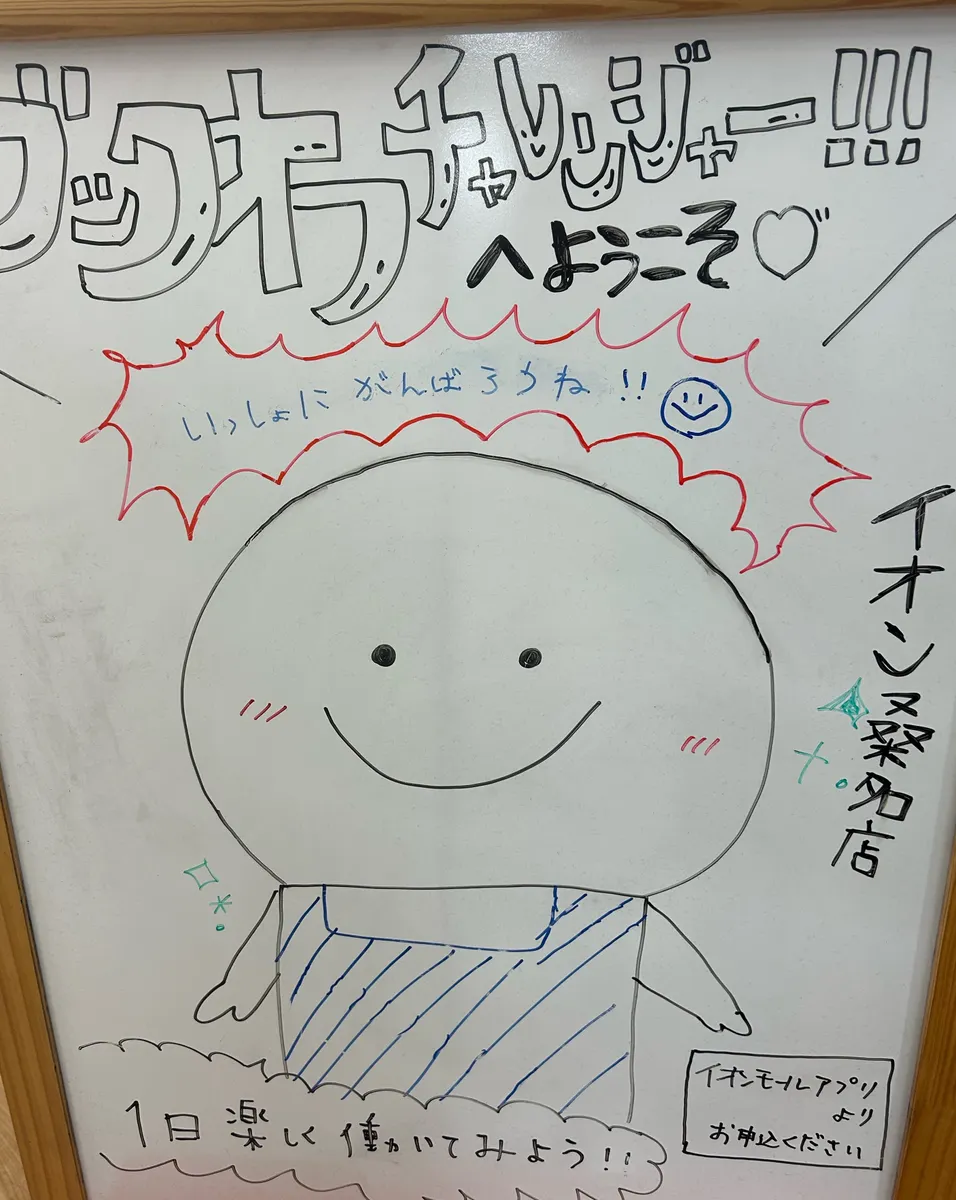 ブックオフチャレンジャー!!!
へようこそ♡
いっしょに がんばろうね!!
イオン桑名店
1日楽しく働かいてみよう!!
イオンモールアプリ
より
お申込ください